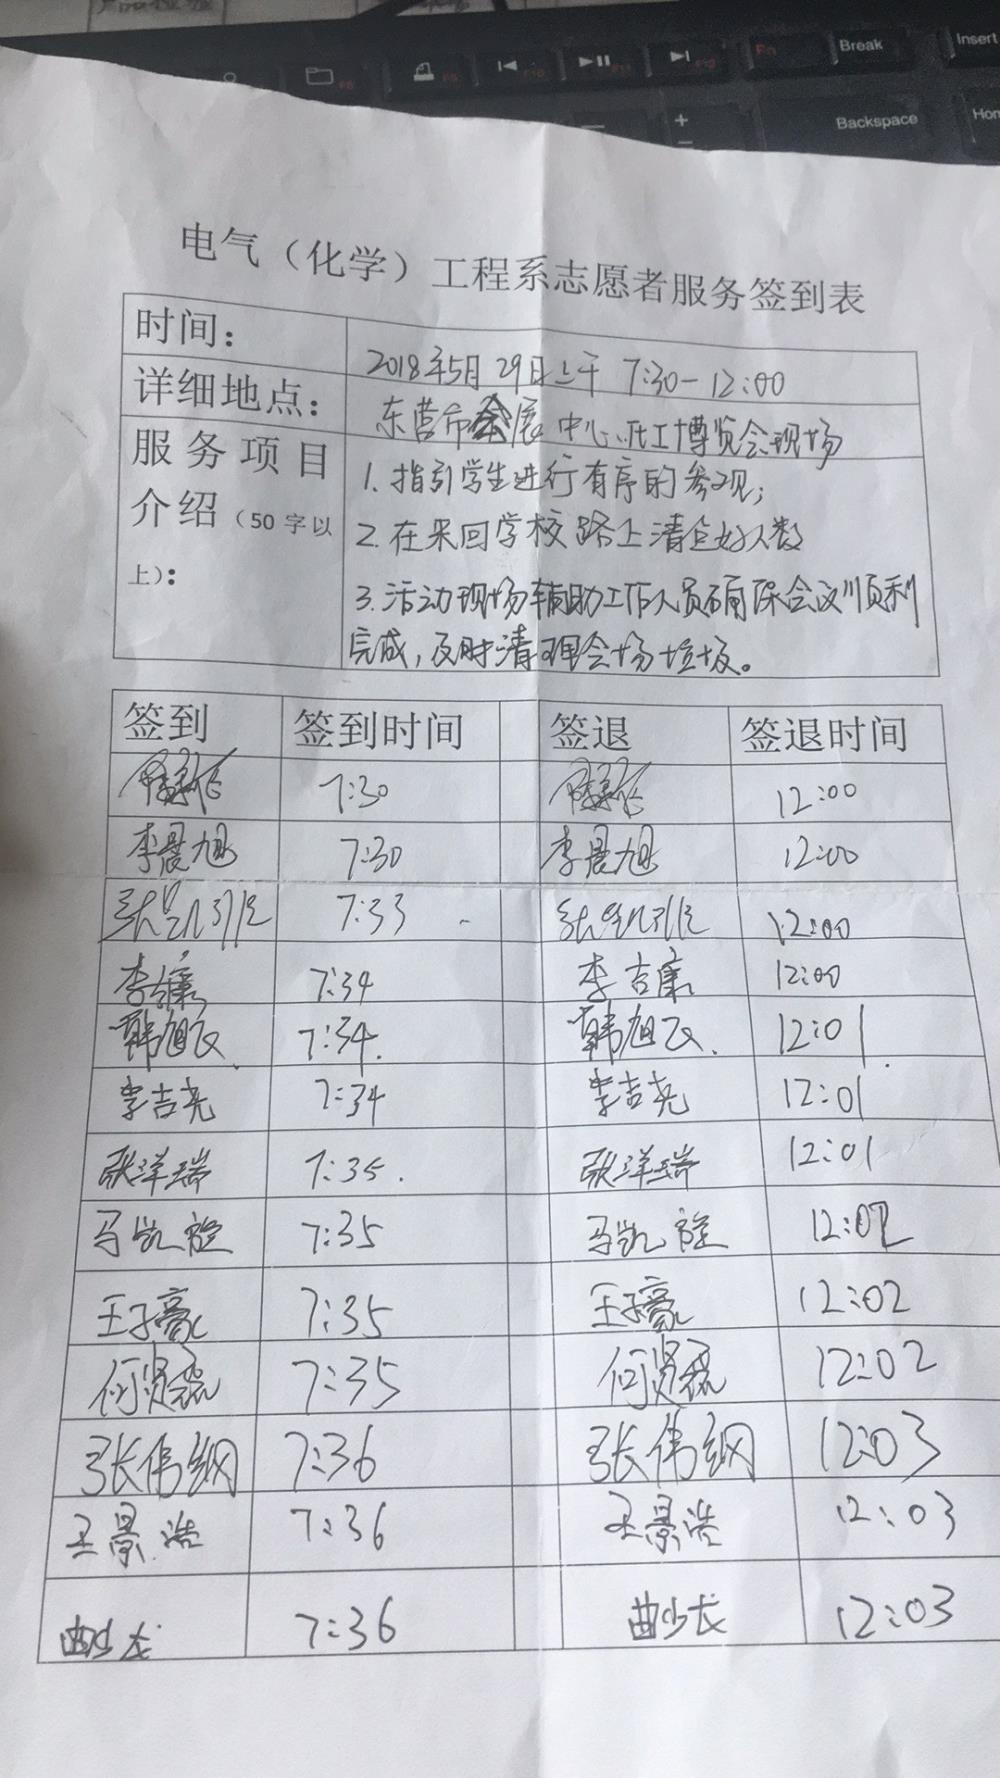 F9 F10 F11 F12 Fn Break Insert
Backspace
电气（化学）工程系志愿者服务签到表
时间： 2018年5月29日上午 7:30-12:00
详细地点： 东营市会展中心.石工博览会现场
服务项目
介绍（50字以
上）：
1.指引学生进行有序的参观；
2.在来回学校路上清点好人数
3.活动现场辅助工作人员确保会议顺利
完成，及时清理会场垃圾。
签到 签到时间 签退 签退时间
7:30 12:00
李晨旭 7:30 李晨旭 12:00
7:33 12:00
李吉康 7:34 李吉康 12:00
韩旭飞 7:34. 韩旭飞 12:01
李吉尧 7:34 李吉尧 12:01
张洋瑞 7:35. 张洋瑞 12:01
马凯旋 7:35 马凯旋 12:02
王子豪 7:35 王子豪 12:02
何贤磊 7:35 何贤磊 12:02
张伟钢 7:36 张伟钢 12:03
王景浩 7:36 王景浩 12:03
曲少龙 7:36 曲少龙 12:03